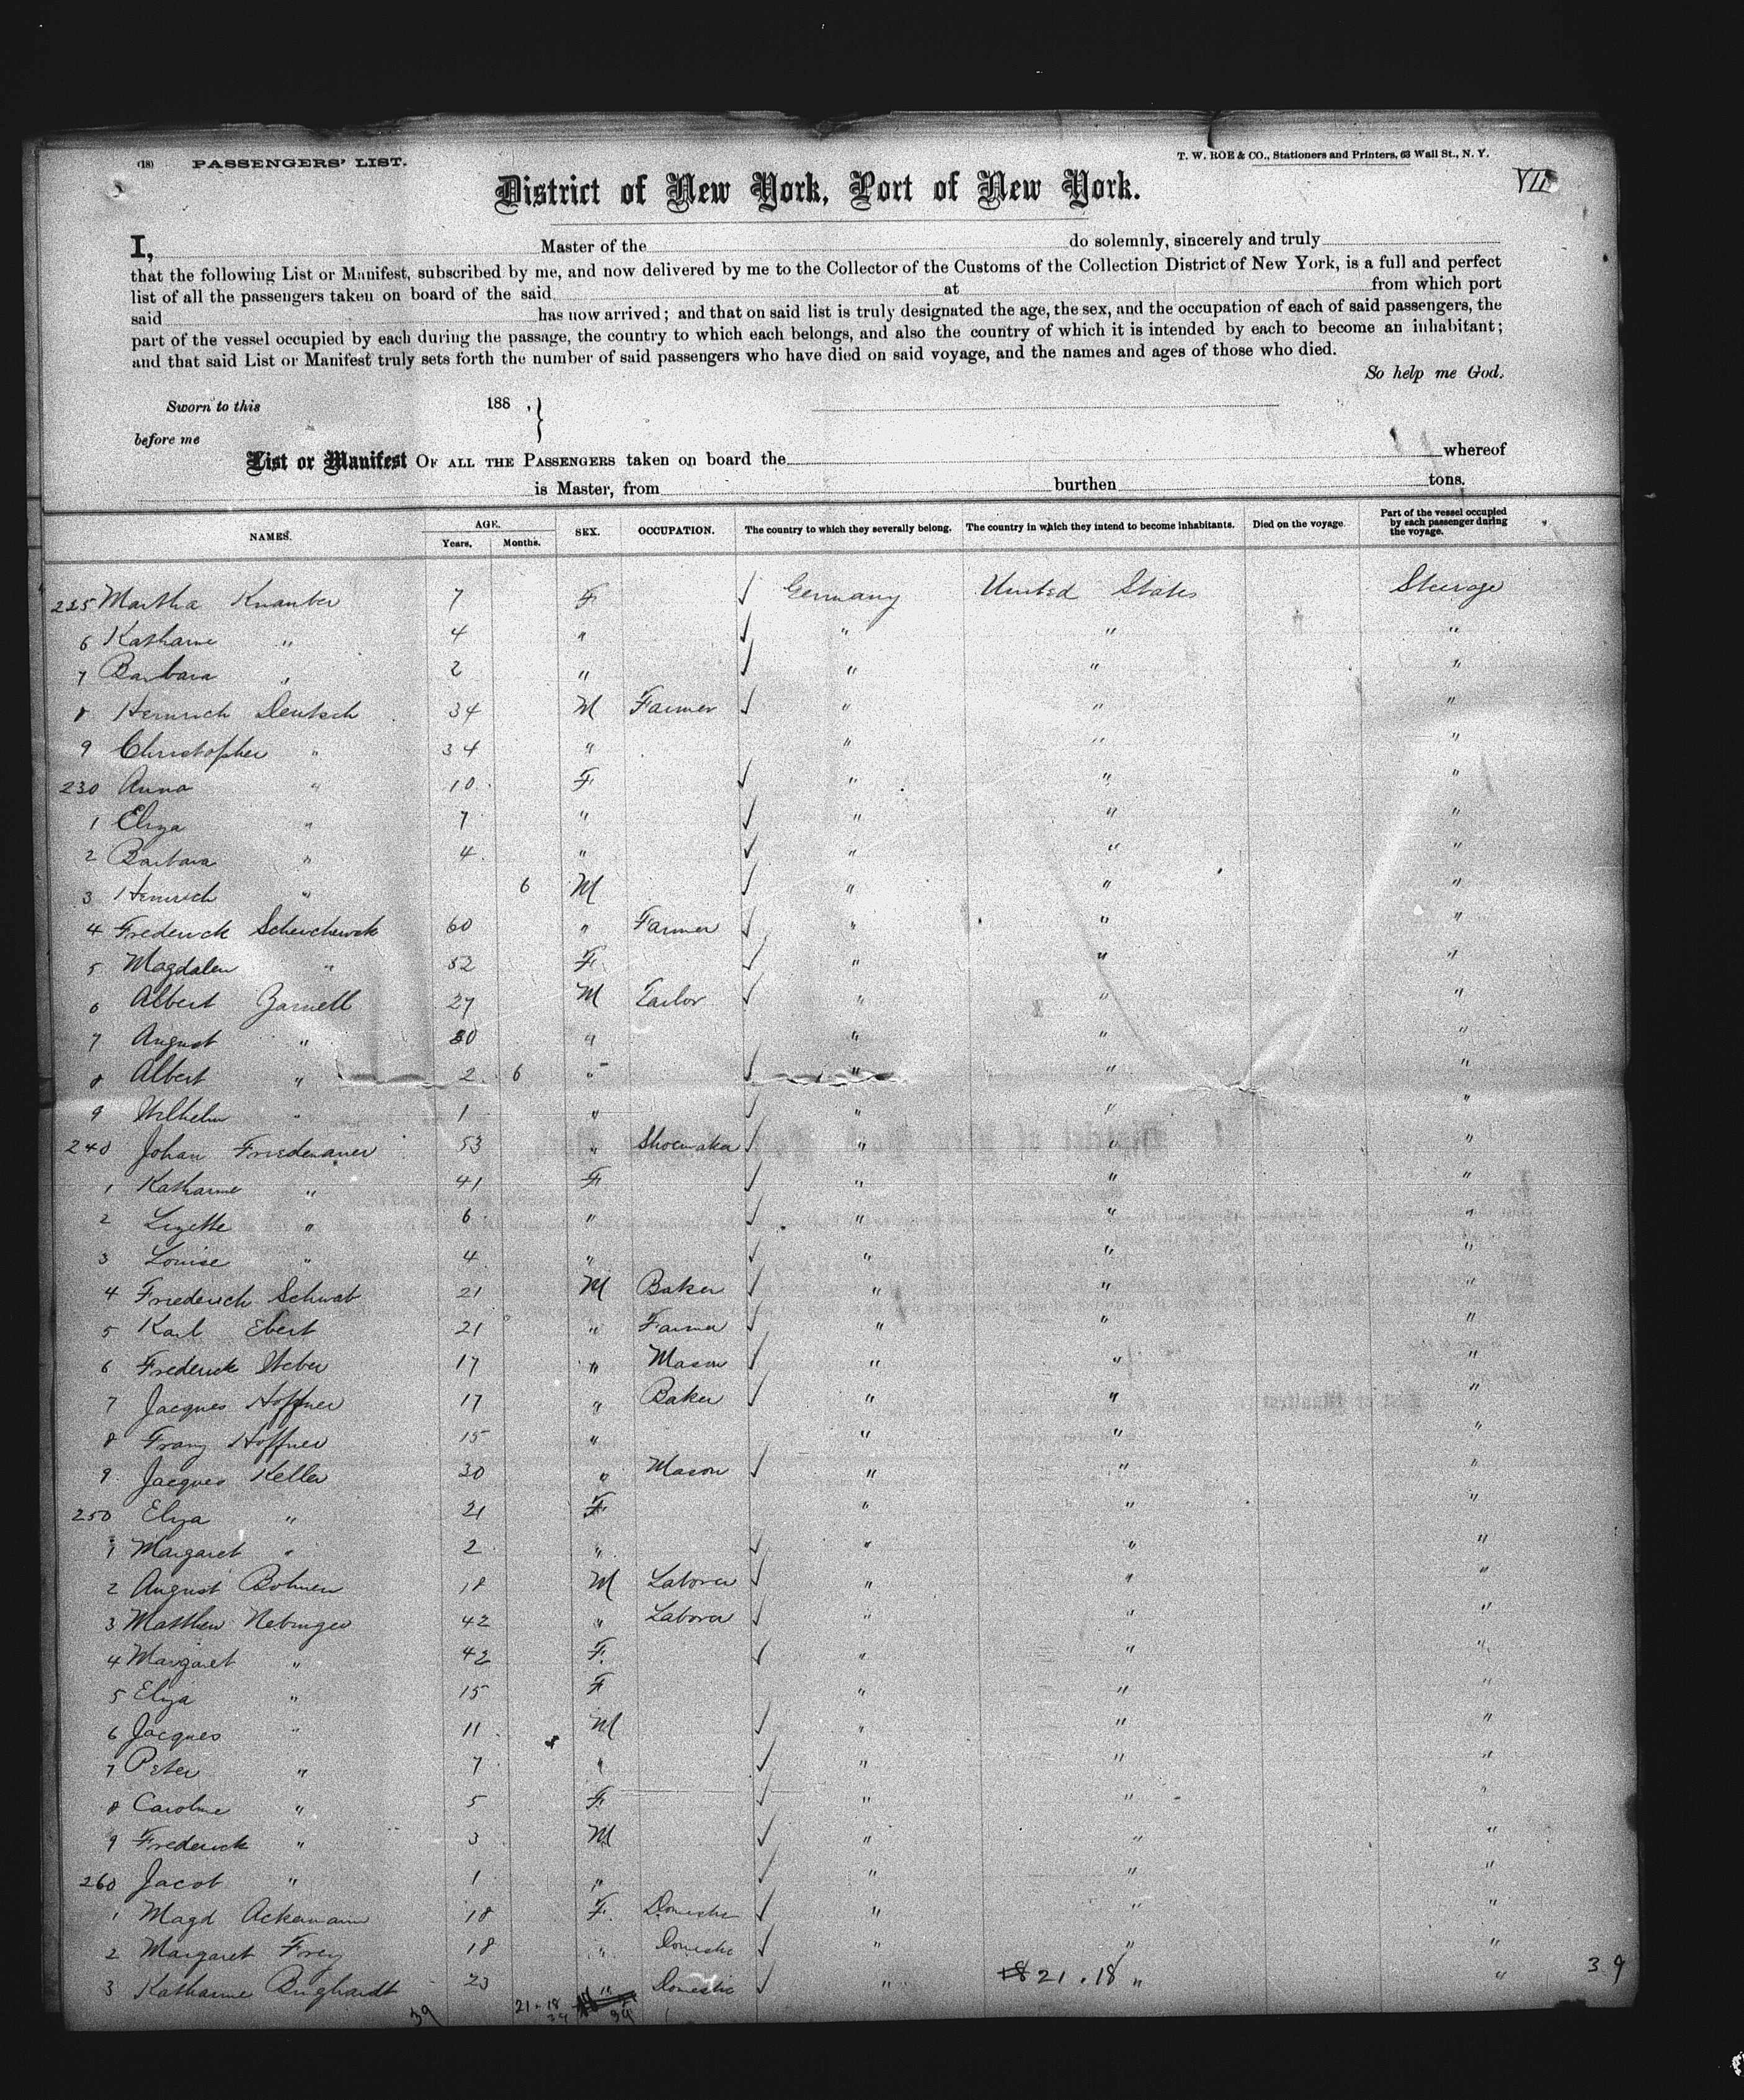 (18) PASSENGERS' LIST.
T. W. ROE & CO., Stationers and Printers, 63 Wall St., N. Y.
VII
District of New York, Port of New York.
I, Master of the do solemnly, sincerely and truly
that the following List or Manifest, subscribed by me, and now delivered by me to the Collector of the Customs of the Collection District of New York, is a full and perfect
list of all the passengers taken on board of the said at from which port
said has now arrived; and that on said list is truly designated the age, the sex, and the occupation of each of said passengers, the
part of the vessel occupied by each during the passage, the country to which each belongs, and also the country of which it is intended by each to become an inhabitant;
and that said List or Manifest truly sets forth the number of said passengers who have died on said voyage, and the names and ages of those who died.
So help me God.
Sworn to this 188 , }
before me
List or Manifest OF ALL THE PASSENGERS taken on board the whereof
is Master, from burthen tons.
NAMES. AGE. Years. Months. SEX. OCCUPATION. The country to which they severally belong. The country in which they intend to become inhabitants. Died on the voyage. Part of the vessel occupied by each passenger during the voyage.
225 Martha Knauber 7 F ✓ Germany United States Steerage
6 Katharine " 4 " ✓ " " "
7 Barbara " 2 " ✓ " " "
8 Heinrich Deutsch 34 M Farmer ✓ " " "
9 Christopher " 34 " " " "
230 Anna " 10 F ✓ " " "
1 Eliza " 7 " ✓ " " "
2 Barbara " 4 " ✓ " " "
3 Heinrich " 6 M ✓ " " "
4 Frederick 60 " Farmer ✓ " " "
5 Magdalen " 52 F ✓ " " "
6 Albert Zarnell 27 M Tailor ✓ " " "
7 August " 30 " " " "
8 Albert " 2 6 " ✓ " " "
9 Wilhelm " 1 " ✓ " " "
240 Johan Friedenauer 53 " Shoemaker ✓ " " "
1 Katharine " 41 F ✓ " " "
2 Lizette " 6 " ✓ " " "
3 Louise " 4 " ✓ " " "
4 Friederich Schwab 21 M Baker ✓ " " "
5 Karl Ebert 21 " Farmer ✓ " " "
6 Frederick Weber 17 " Mason ✓ " " "
7 Jacques Hoffner 17 " Baker ✓ " " "
8 Franz Hoffner 15 " " " "
9 Jacques Keller 30 " Mason ✓ " " "
250 Eliza " 21 F " " "
1 Margaret " 2 " ✓ " " "
2 August Bohnen 18 M Laborer ✓ " " "
3 Matthew Nebinger 42 " Laborer ✓ " " "
4 Margaret " 42 F. ✓ " " "
5 Eliza " 15 F " " "
6 Jacques " 11 M ✓ " " "
7 Peter " 7 " ✓ " " "
8 Caroline " 5 F. ✓ " " "
9 Frederick " 3 M ✓ " " "
260 Jacob " 1 " ✓ " " "
1 Magd Ackermann 18 F. Domestic ✓ " " "
2 Margaret Frey 18 " Domestic ✓ " " "
3 Katharine Burghardt 23 " Domestic ✓ " 21 . 18 " " 39
39 21 . 18 39